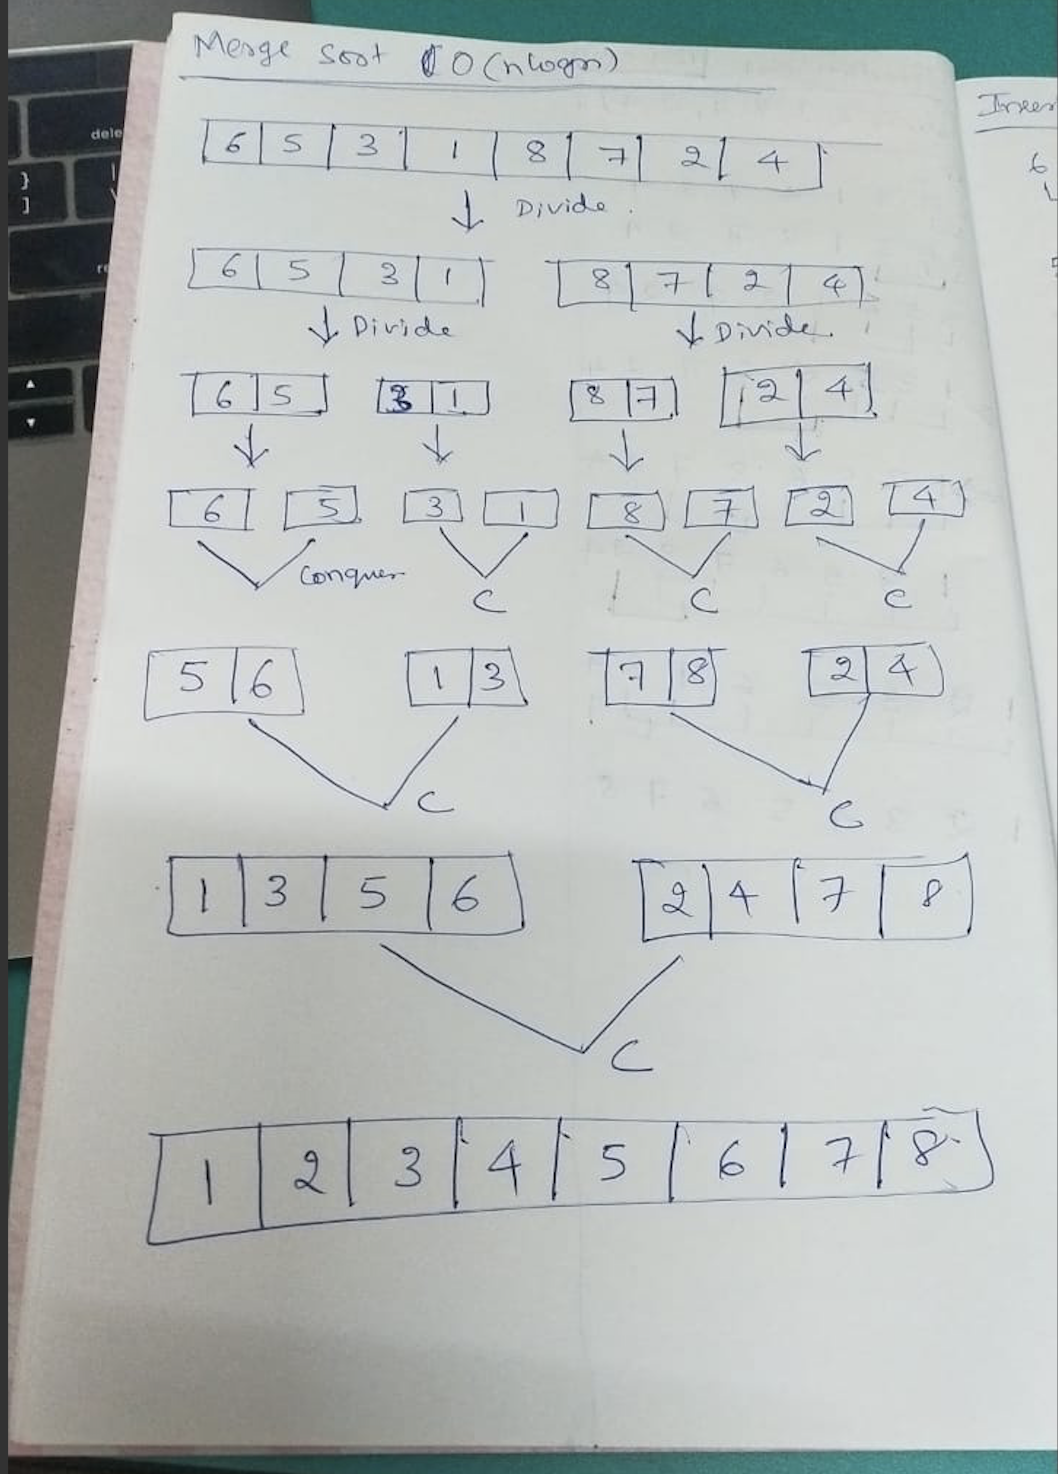 Merge sort O(nlogn)
6 5 3 1 8 7 2 4
Divide
6 5 3 1 8 7 2 4
Divide Divide
6 5 3 1 8 7 2 4
6 5 3 1 8 7 2 4
Conquer C C C
5 6 1 3 7 8 2 4
C C
1 3 5 6 2 4 7 8
C
1 2 3 4 5 6 7 8
dele
}
]
6